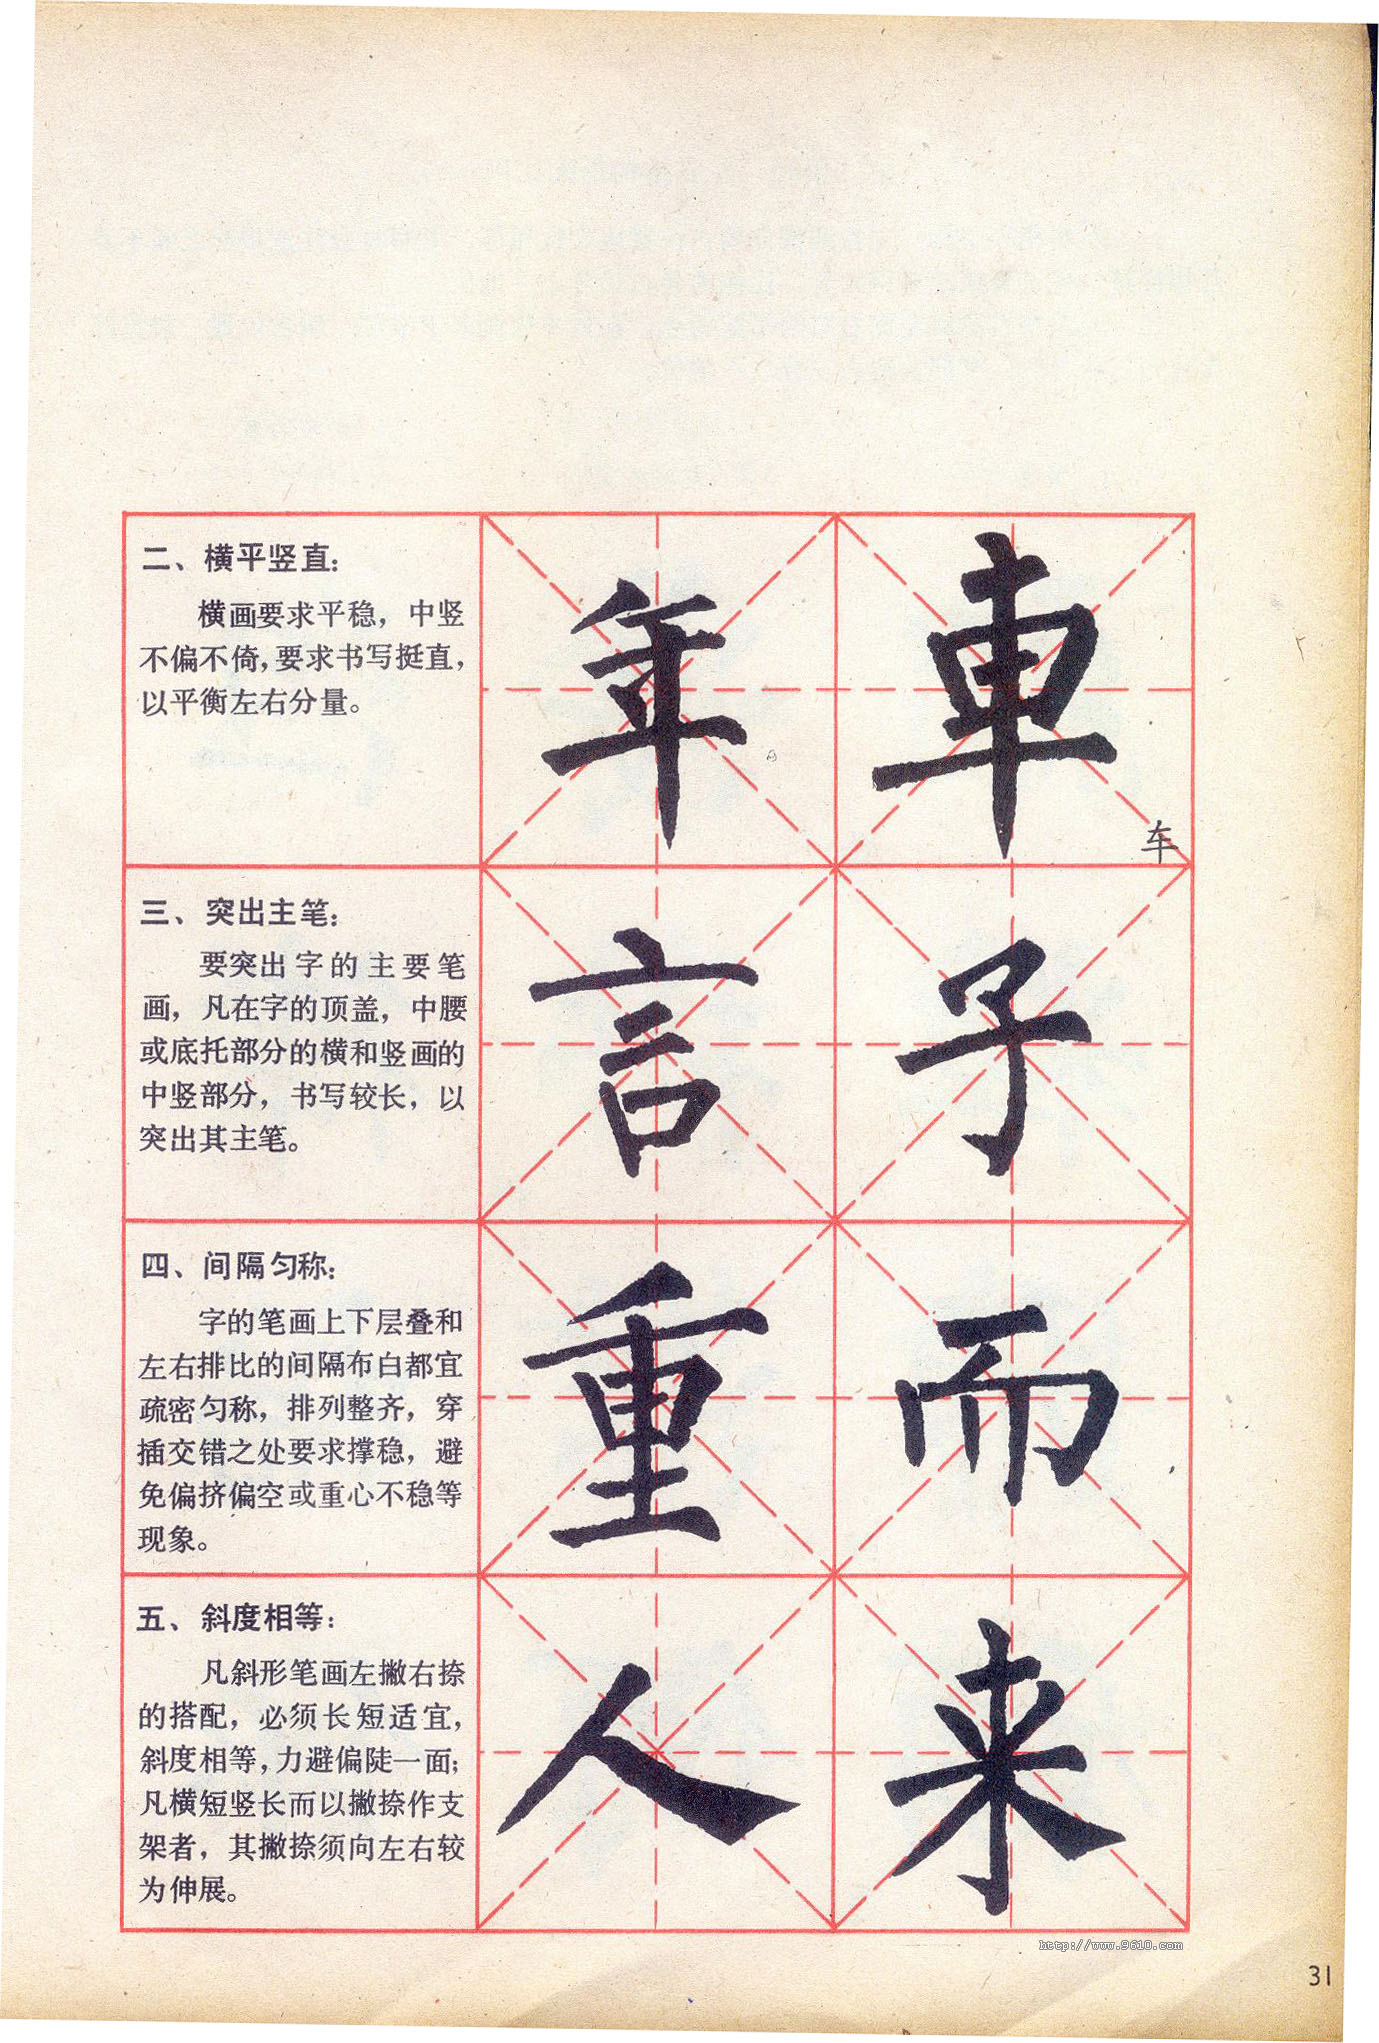 二、横平竖直：
横画要求平稳，中竖
不偏不倚，要求书写挺直，
以平衡左右分量。
年
車
车
三、突出主笔：
要突出字的主要笔
画，凡在字的顶盖，中腰
或底托部分的横和竖画的
中竖部分，书写较长，以
突出其主笔。
言
子
四、间隔匀称：
字的笔画上下层叠和
左右排比的间隔布白都宜
疏密匀称，排列整齐，穿
插交错之处要求撑稳，避
免偏挤偏空或重心不稳等
现象。
重
而
五、斜度相等：
凡斜形笔画左撇右捺
的搭配，必须长短适宜，
斜度相等，力避偏陡一面；
凡横短竖长而以撇捺作支
架者，其撇捺须向左右较
为伸展。
人
来
http://www.9610.com
31